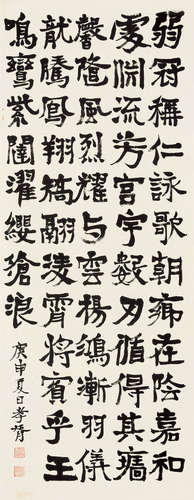 弱冠稱仁詠歌朝鄉在陰嘉和
處淵流芳宮宇數刃循得其廧
馨隨風烈耀与雲楊鴻漸羽儀
龍騰鳳翔矯翮淩霄將賓乎王
鳴鸞紫闥濯纓滄浪
庚申夏日孝胥